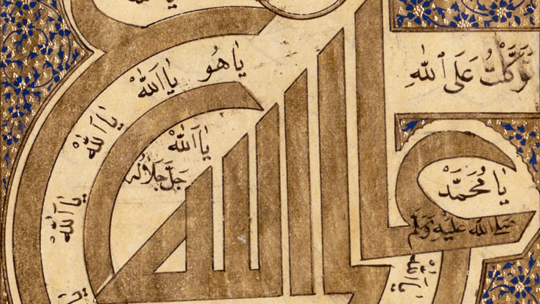 توكلت على الله
يا هو
يا الله
يا الله
يا الله
جل جلاله
يا الله
يا محمد
صلى الله عليه وسلم
يا الله